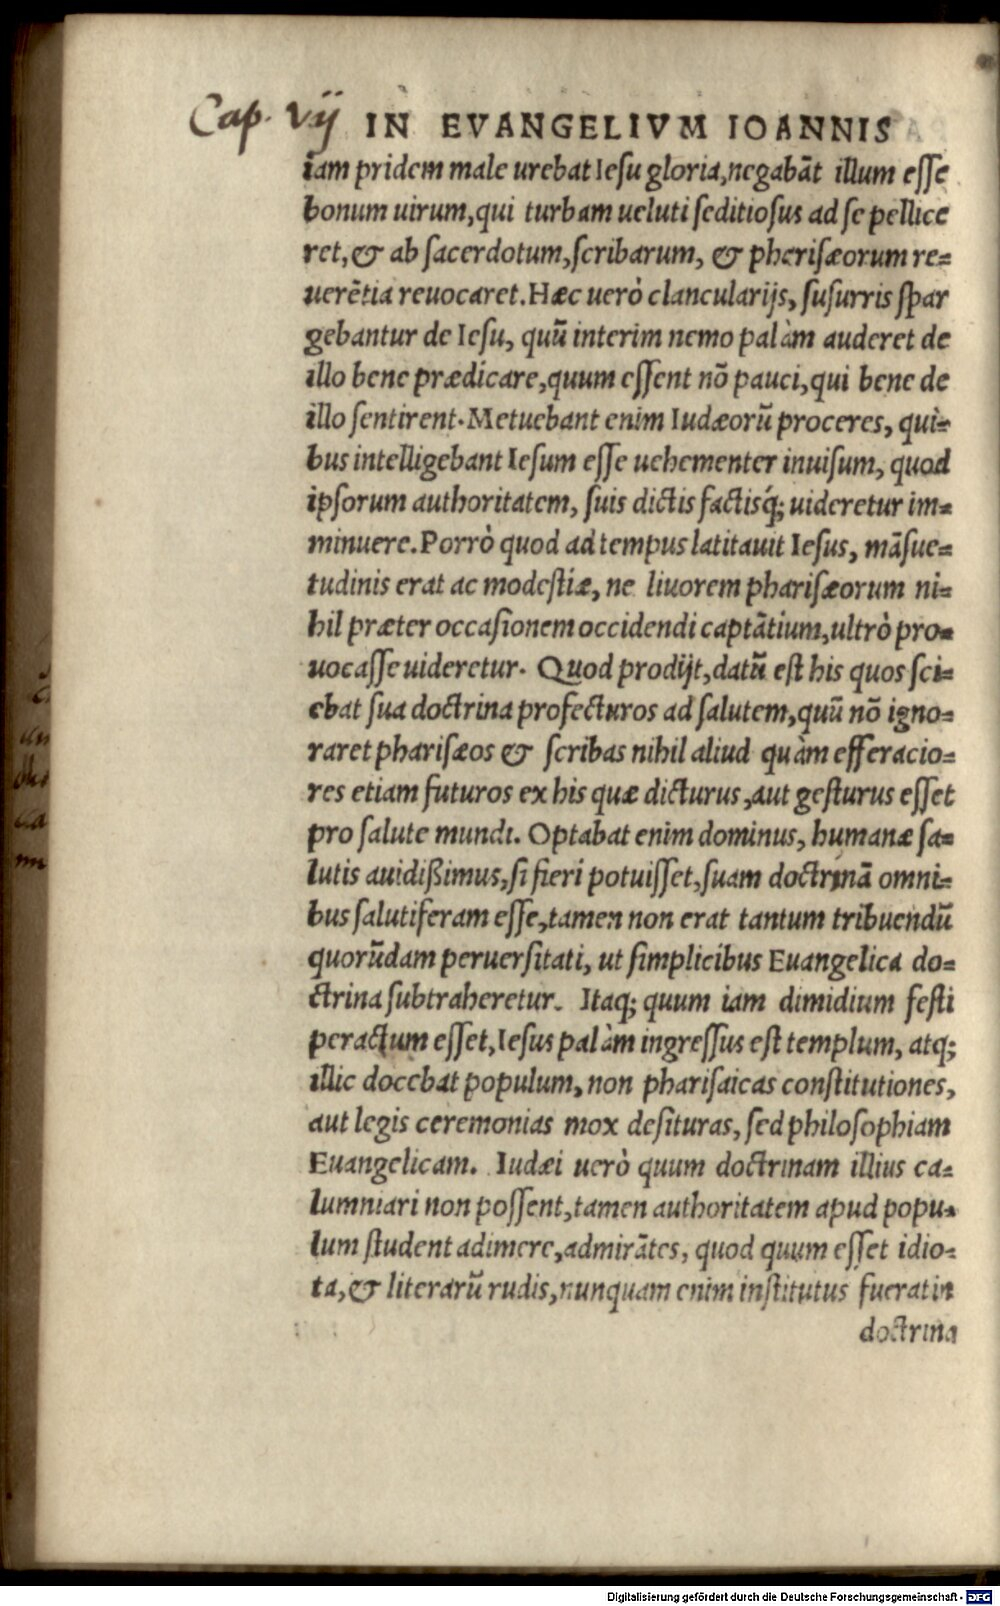 Cap. vij IN EVANGELIVM IOANNIS
iam pridem male urebat Iesu gloria, negabāt illum esse
bonum uirum, qui turbam ueluti seditiosus ad se pellice
ret, & ab sacerdotum, scribarum, & pherisæorum re=
uerētia reuocaret. Hæc uerò clancularijs, susurris spar
gebantur de Iesu, quū interim nemo palàm auderet de
illo bene prædicare, quum essent nō pauci, qui bene de
illo sentirent. Metuebant enim Iudæorū proceres, qui=
bus intelligebant Iesum esse uehementer inuisum, quod
ipsorum authoritatem, suis dictis factisq́; uideretur im=
minuere. Porrò quod ad tempus latitauit Iesus, māsue=
tudinis erat ac modestiæ, ne liuorem pharisæorum ni=
hil præter occasionem occidendi captātium, ultrò pro=
uocasse uideretur. Quod prodijt, datū est his quos sci=
ebat sua doctrina profecturos ad salutem, quū nō igno=
raret pharisæos & scribas nihil aliud quàm efferacio=
res etiam futuros ex his quæ dicturus, aut gesturus esset
pro salute mundi. Optabat enim dominus, humanæ sa=
lutis auidißimus, si fieri potuisset, suam doctrinā omni=
bus salutiferam esse, tamen non erat tantum tribuendū
quorūdam peruersitati, ut simplicibus Euangelica do=
ctrina subtraheretur. Itaq; quum iam dimidium festi
peractum esset, Iesus palàm ingressus est templum, atq;
illic docebat populum, non pharisaicas constitutiones,
aut legis ceremonias mox desituras, sed philosophiam
Euangelicam. Iudæi uerò quum doctrinam illius ca=
lumniari non possent, tamen authoritatem apud popu=
lum student adimere, admirātes, quod quum esset idio=
ta, & literarū rudis, nunquam enim institutus fuerat in
doctrina
Digitalisierung gefördert durch die Deutsche Forschungsgemeinschaft - DFG